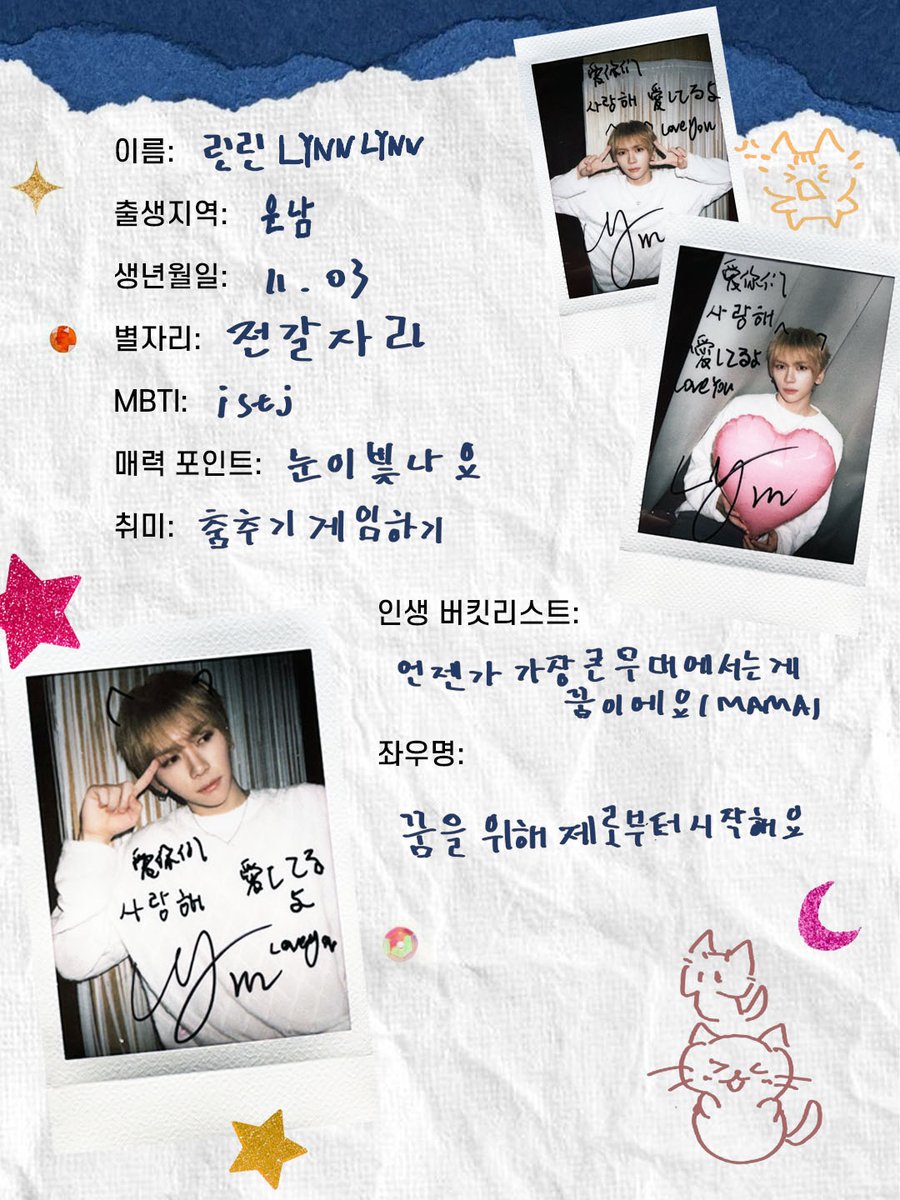 이름: 린린 LYNN LYNN
출생지역: 운남
생년월일: 11.03
별자리: 전갈자리
MBTI: istj
매력 포인트: 눈이 빛나요
취미: 춤추기 게임하기
인생 버킷리스트:
언젠가 가장 큰 무대에서는게
꿈이에요(MAMA)
좌우명:
꿈을 위해 제로부터 시작해요
爱你们
사랑해 愛してるよ
Love you
爱你们
사랑해
愛してるよ
Love you
爱你们
사랑해 愛してる
よ
Love you